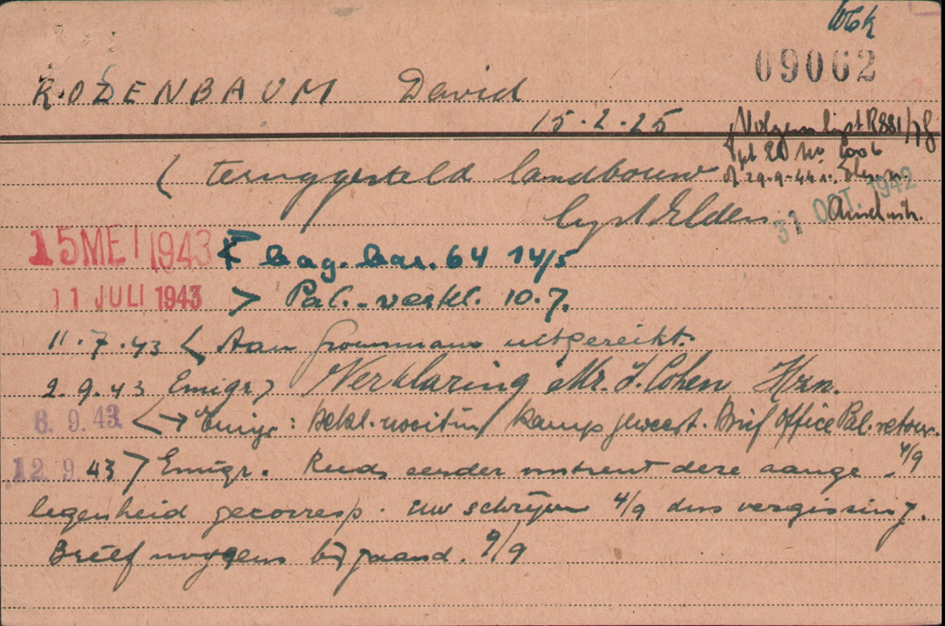 Wbk
09062
ROZENBAUM David
15.2.25
Volgens lijst R881/78
v. 29-9-44 n.
31 OCT. 1942
< teruggesteld landbouw
lijst Elden
15 MEI 1943 < bag. bar. 64 14/5
11 JULI 1943 > Pal.-verkl. 10.7.
11.7.43 < Aan Grossmann uitgereikt.
2.9.43 Emigr> Verklaring Mr. I. Cohen Hzn.
6.9.43 <→ Emigr: bekl. nooit in kamp geweest. Brief Office Pal. retour. 4/9
12.9.43 > Emigr. Reeds eerder omtrent deze aange
legenheid gecorresp. Uw schrijven 4/9 dus vergissing.
Brief nogmaals bijgaand. 9/9